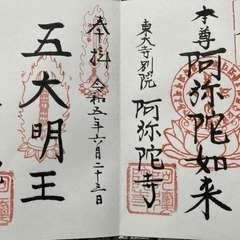 本尊 阿弥陀如来
東大寺別院 阿弥陀寺
奉拝 令和五年六月二十三日
五大明王